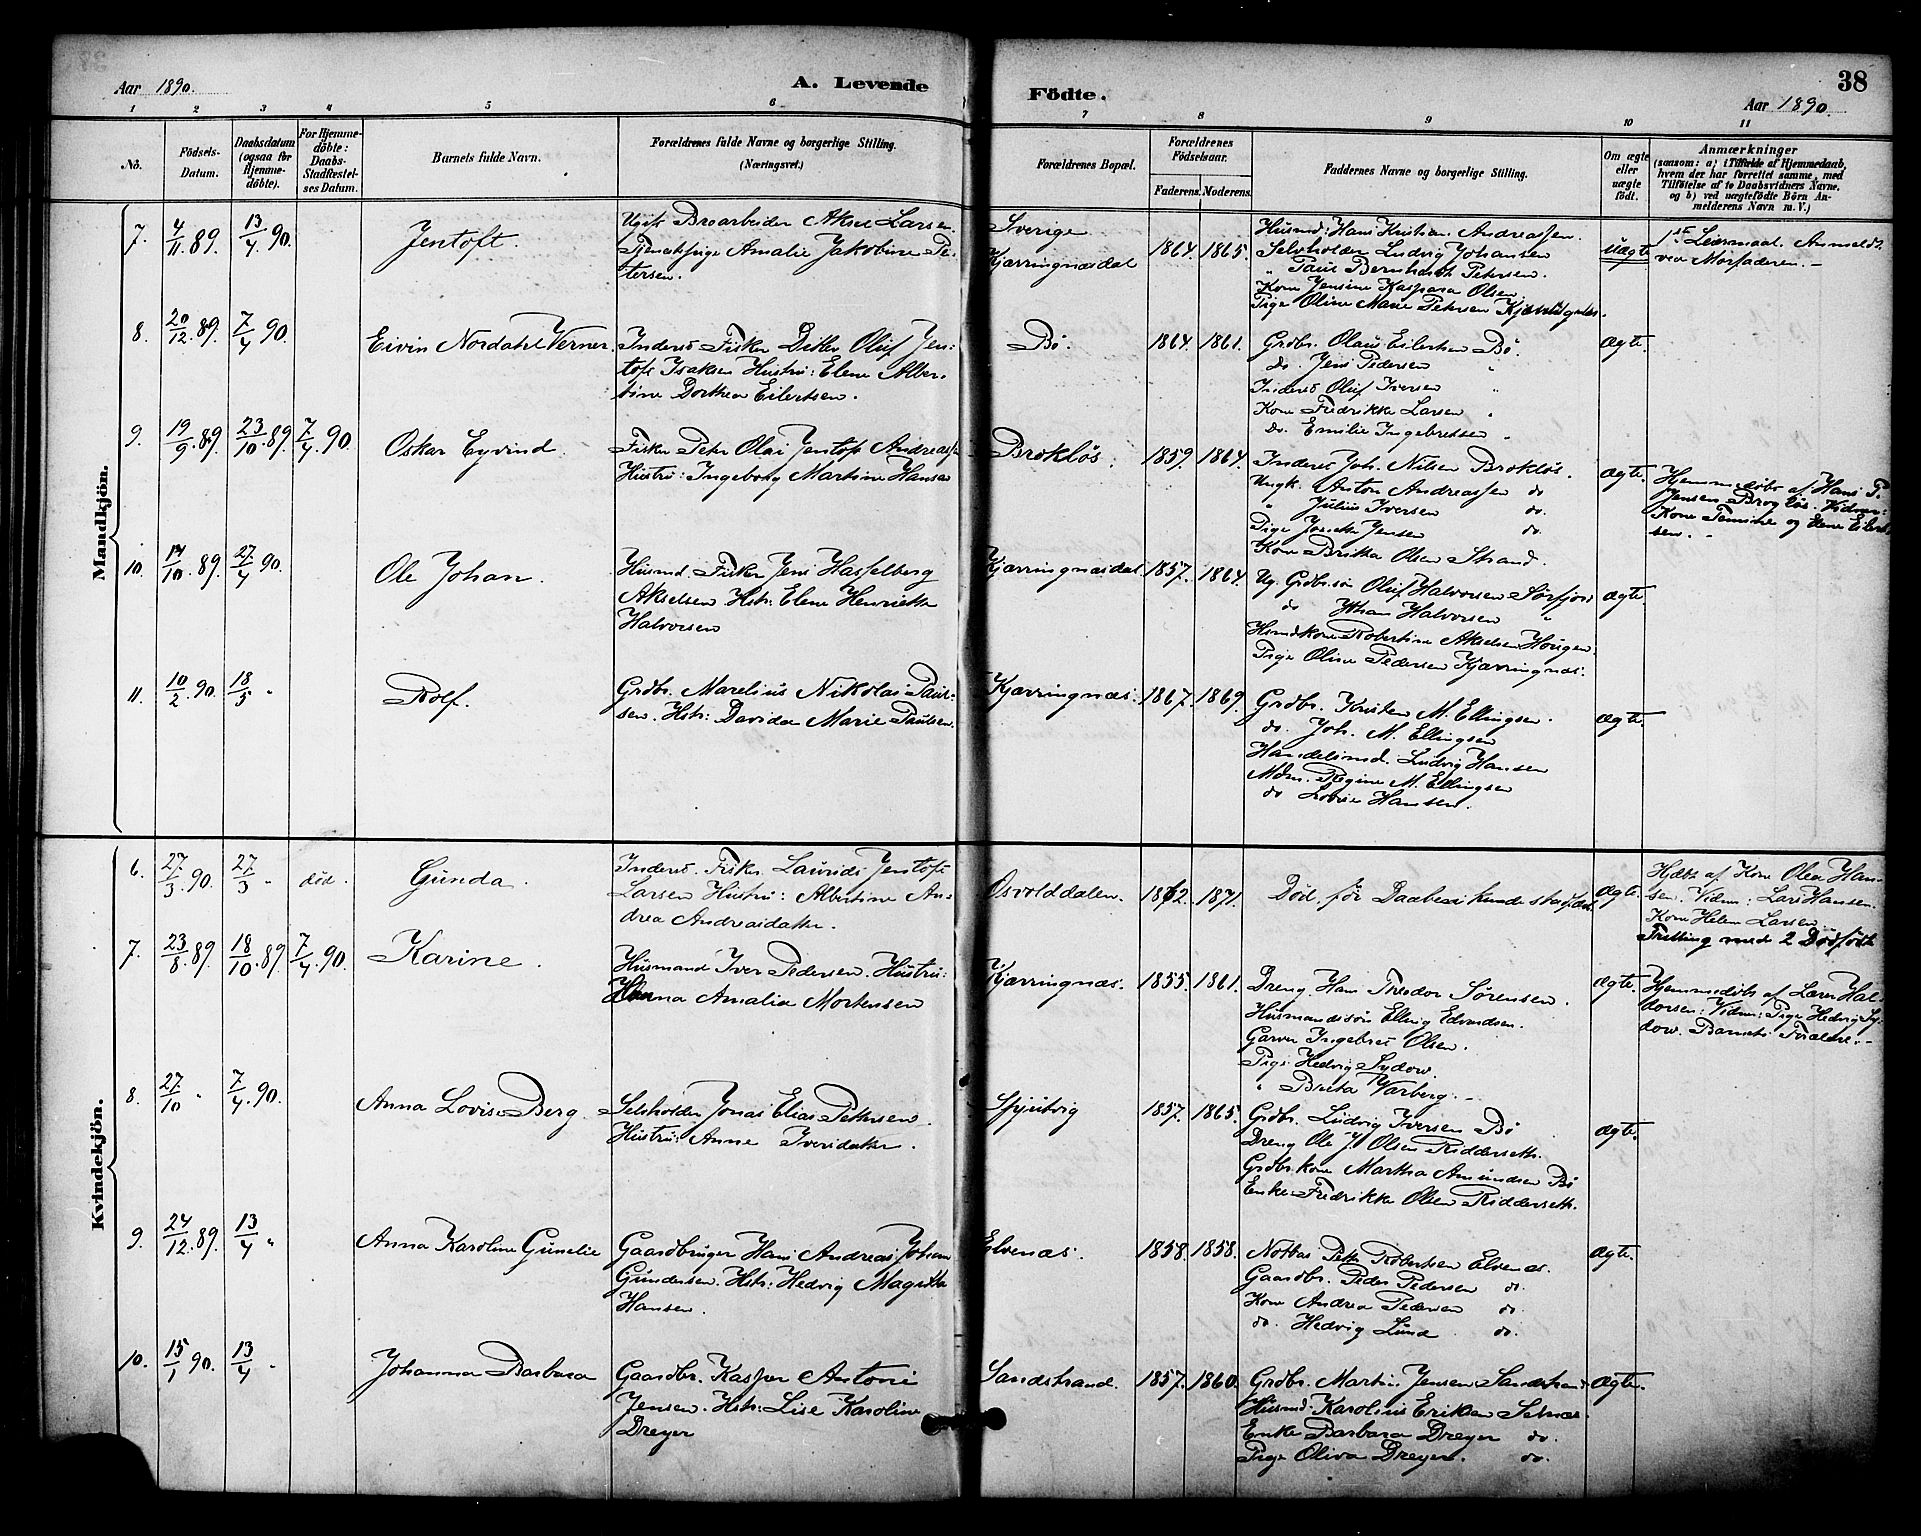 Aar 1890.
A. Levende
Födte.
38
Aar 1890.
1 2 3 4 5 6 7 8 9 10 11
No.
Födsels-
Datum.
Daabsdatum
(ogsaa for
Hjemme-
döbte).
For Hjemme-
döbte:
Daabs-
Stadfæstel-
ses Datum.
Barnets fulde Navn.
Forældrenes fulde Navne og borgerlige Stilling.
(Næringsvei.)
Forældrenes Bopæl.
Forældrenes
Födselsaar.
Faderens. Moderens.
Faddernes Navne og borgerlige Stilling.
Om ægte
eller
uægte
født.
Anmærkninger
(saasom: a) i Tilfælde af Hjemmedaab,
hvem der har forrettet samme, med
Tilföielse af to Daabsvidners Navne,
og b) ved uægtefödte Börn An-
melderens Navn m. V.)
Mandkjön.
7. 4/11 89. 13/4 90. Jentoft.
Ugift Broarbeider Aksel Larsen
Tjenestepige Amalie Jakobine Pe-
tersen.
Sverige
Kjærringnæsdal 1864. 1865.
Husmd: Hans Kristian Andreassen.
Selvholder Ludvig Johansen
" Paul Bernhardt Petersen.
Kone Jensine Kaspara Olsen
Pige Oline Marie Petersen
uægte
1ste Leiermaal. Anmeldt
ved Morfaderen.
8. 20/12 89. 7/4 90. Eivin Nordahl Verner.
Inderst Fisker Ditlev Oluf Jen-
toft Isaksen Hustru: Elene Alber-
tine Dorthea Eilertsen.
Bö. 1864. 1861.
Grdbr. Olaus Eilertsen Bö.
do. Jens Pedersen "
Inderst Oluf Iversen "
Kone Fredrikke Larsen "
do. Emilie Ingebretsen "
ægte.
9. 19/9 89. 23/10 89. 7/4 90. Oskar Eyvind.
Fisker Peter Olai Jentoft Andreassen
Hustru: Ingeborg Martine Hansen
Brokløs. 1859. 1864.
Inderst Joh. Nilsen Brokløs.
Ungk. Anton Andreassen do
" Julius Iversen do.
Pige Jensen do.
Kone Britha Olsen Strand.
ægte.
Hjemmedøbt af Hans P.
Jensen Brogløs. Vidner:
Kone Pernine og Elene Eilert-
sen.
10. 14/10 89. 27/4 90. Ole Johan.
Husmd. Fisker Jens Hasselberg
Akselsen Hstr: Elene Henriette
Halvorsen
Kjærringnæsdal 1857. 1864.
Ug. Grdbr.søn Oluf Halvorsen Sørfjord
do Halvorsen "
Husmdkone Robertine Akselsen Haugen.
Pige Oline Pedersen Kjærringnæs.
ægte.
11. 10/2 90. 18/5 " Rolf.
Grdbr. Marelius Nikolai Paul-
sen. Hstr: Davida Marie Paulsen.
Kjærringnæs. 1867. 1869.
Grdbr. Kristen M. Ellingsen.
do. Joh. M. Ellingsen
Handelsmd. Ludvig Hansen
Mdm. Regine M. Ellingsen
do Lovise Hansen.
ægte.
Kvindekjön.
6. 27/3 90. 27/3 " død. Gunda.
Inderst. Fisker Laurids Jentoft
Larsen Hustru: Albertine An-
drea Andreasdatter.
Osvolddalen. 1862. 1871.
Död før Daaben kunde stadfæstes
ægte.
Hjdbt af Kone Olea Han-
sen. Vidner: Lars Hansen.
Kone Helene Larsen.
Trilling med 2 Dødfødte
7. 23/8 89. 18/10 89. 7/4 90. Karine.
Husmand Iver Pedersen. Hustru:
Hanna Amalia Mortensen
Kjærringnæs. 1855. 1861.
Dreng. Hans Theodor Sörensen.
Husmandssön Elling Edvardsen.
Garver Ingebret Olsen.
Pige Hedvig Sydow.
" Breta Varberg.
ægte.
Hjemmedøbt af Lærer Hal-
dorsen: Vidner: Pige Hedvig Sy-
dow. Barnets Forældre.
8. 27/10 " 7/4 90. Anna Lovise Berg.
Selvholder Jonas Elias Pettersen.
Hustru: Anne Iversdatter.
Spjutvig 1857. 1865.
Grdbr. Ludvig Iversen Bö
Dreng Ole J. Olsen Ridderseth.
Grdbr.kone Martha Amundsen Bö
Enke Fredrikke Olsen Ridderseth.
ægte.
9. 24/12 89. 13/4 " Anna Karoline Gunelie
Gaardbruger Hans Andreas Johan
Gundersen. Hstr: Hedvig Magrethe
Hansen.
Elvenæs. 1858. 1858.
Notbas Peter Robertsen Elvenæs.
Gaardbr. Peder Pedersen do.
Kone Andrea Pedersen do.
do. Hedvig Lund do.
ægte.
10. 15/1 90. 13/4 " Johanna Barbara
Gaardbr. Kasper Antoni
Jensen. Hstr: Lise Karoline
Dreyer
Sandstrand. 1857. 1860.
Grdbr. Martin Jensen Sandstrand
Husmd. Karolius Eriksen Selnæs.
Enke Barbara Dreyer do.
Pige Oliva Dreyer. do.
ægte.